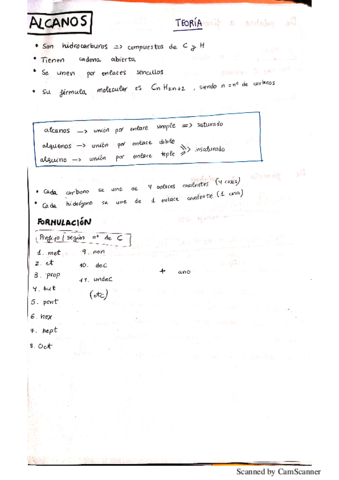 ALCANOS
TEORÍA
• Son hidrocarburos => compuestos de C y H
• Tienen cadena abierta
• Se unen por enlaces sencillos
• Su fórmula molecular es CnH2n+2, siendo n = nº de carbonos
alcanos —> unión por enlace simple => saturado
alquenos —> unión por enlace doble
alquino —> unión por enlace triple
insaturado
• Cada carbono se une de 4 enlaces covalentes (4 uniones)
• Cada hidrógeno se une de 1 enlace covalente (1 unión)
FORMULACIÓN
Prefijo / según nº de C
1. met
2. et
3. prop
4. but
5. pent
6. hex
7. hept
8. oct
9. non
10. dec
11. undec
(etc)
+ ano
Scanned by CamScanner